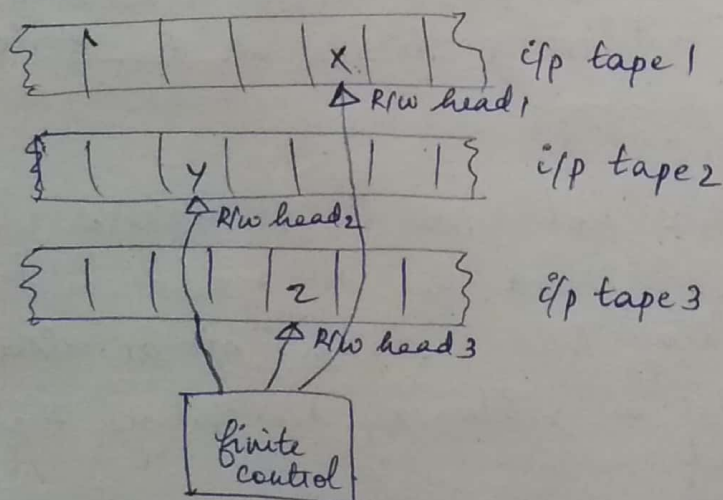 X i/p tape 1
R/W head1
Y i/p tape 2
R/W head2
z i/p tape 3
R/W head 3
finite
control